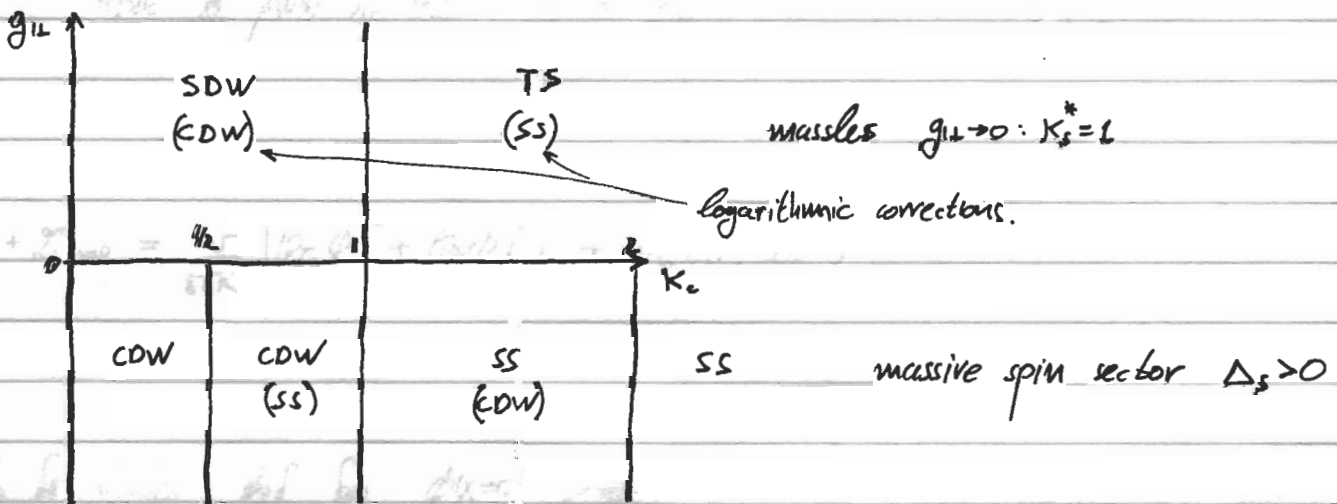 g1⊥
SDW TS
(CDW) (SS) massles g1⊥→0 : Ks*=1
logarithmic corrections.
0 1/2 1 2
Kc
CDW CDW SS SS massive spin sector Δs>0
(SS) (CDW)